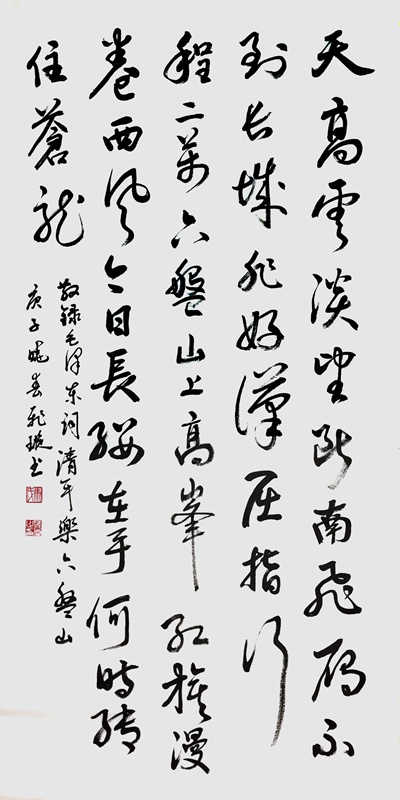 天高雲淡望斷南飛雁不
到長城非好漢屈指行
程二萬六盤山上高峯紅旗漫
卷西風今日長纓在手何時縛
住蒼龍
敬錄毛澤東詞清平樂六盤山
庚子晚春